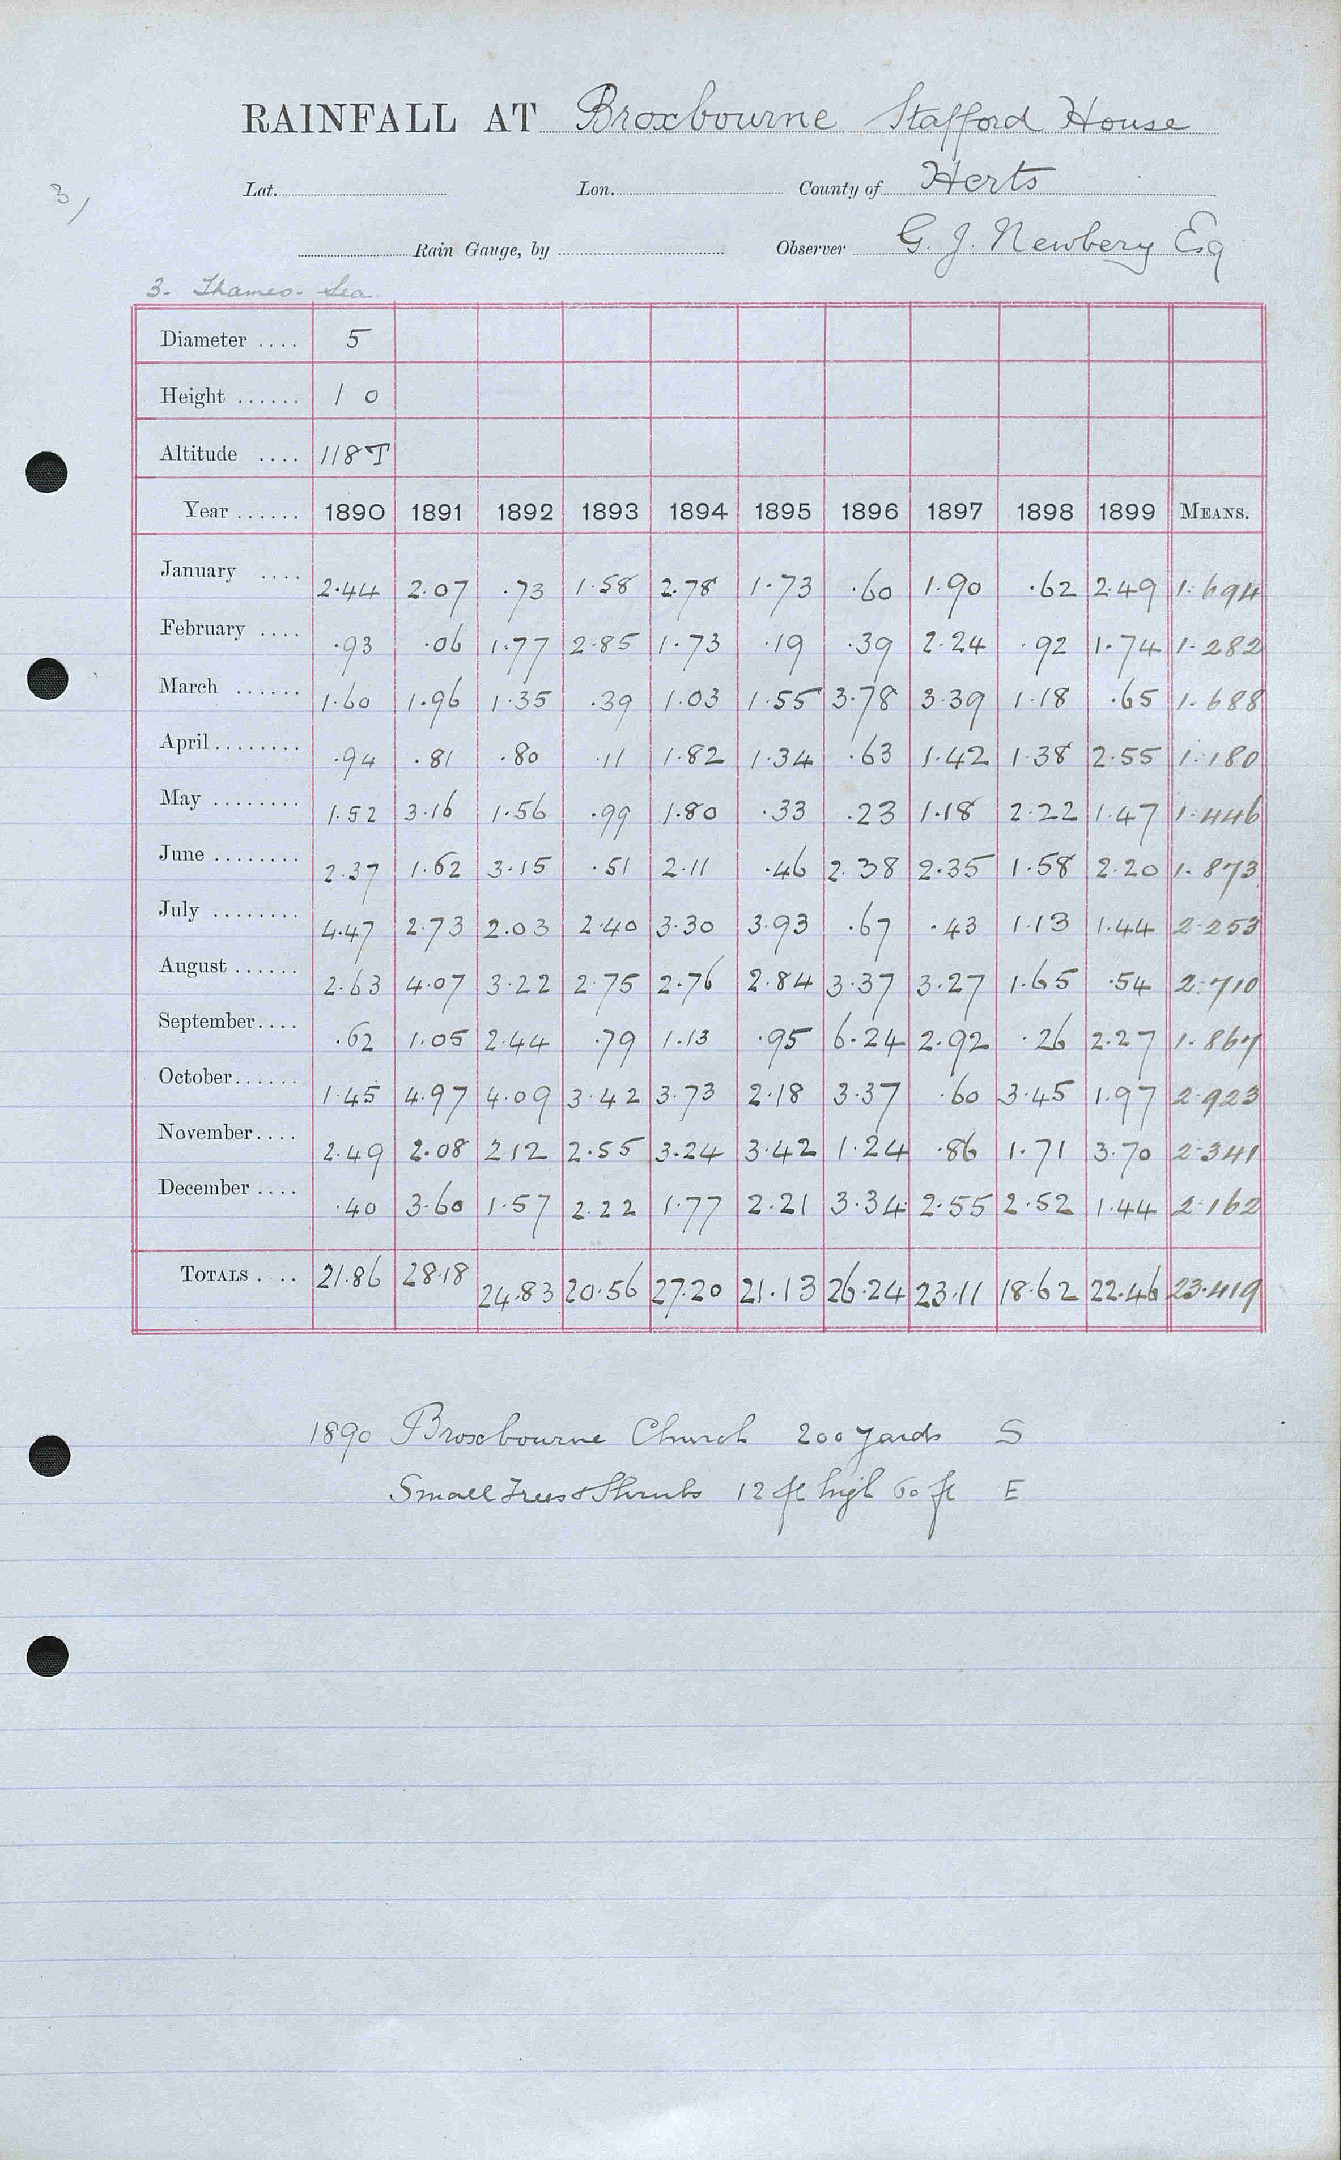 RAINFALL AT Broxbourne Stafford House
3)
Lat. Lon. County of Herts
Rain Gauge, by Observer G. J. Newbery Esq
3. Thames. Sea.
Diameter .... 5
Height ...... 1 0
Altitude .... 118T
Year ...... 1890 1891 1892 1893 1894 1895 1896 1897 1898 1899 MEANS.
January .... 2.44 2.07 .73 1.58 2.78 1.73 .60 1.90 .62 2.49 1.694
February .... .93 .06 1.77 2.85 1.73 .19 .39 2.24 .92 1.74 1.282
March ...... 1.60 1.96 1.35 .39 1.03 1.55 3.78 3.39 1.18 .65 1.688
April ........ .94 .81 .80 .11 1.82 1.34 .63 1.42 1.38 2.55 1.180
May ........ 1.52 3.16 1.56 .99 1.80 .33 .23 1.18 2.22 1.47 1.446
June ........ 2.37 1.62 3.15 .51 2.11 .46 2.38 2.35 1.58 2.20 1.873
July ........ 4.47 2.73 2.03 2.40 3.30 3.93 .67 .43 1.13 1.44 2.253
August ...... 2.63 4.07 3.22 2.75 2.76 2.84 3.37 3.27 1.65 .54 2.710
September .... .62 1.05 2.44 .79 1.13 .95 6.24 2.92 .26 2.27 1.867
October ...... 1.45 4.97 4.09 3.42 3.73 2.18 3.37 .60 3.45 1.97 2.923
November .... 2.49 2.08 2.12 2.55 3.24 3.42 1.24 .86 1.71 3.70 2.341
December .... .40 3.60 1.57 2.22 1.77 2.21 3.34 2.55 2.52 1.44 2.162
TOTALS .... 21.86 28.18 24.83 20.56 27.20 21.13 26.24 23.11 18.62 22.46 23.419
1890 Broxbourne Church 200 yards S
Small Trees & Shrubs 12 ft high 60 ft E